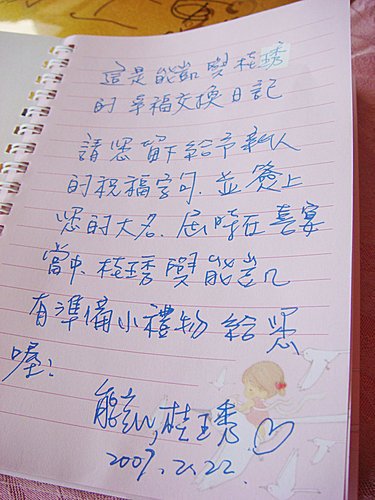 這是能凱與桂琇
的幸福交換日記
請您留下給予新人
的祝福字句. 並簽上
您的大名. 屆時在喜宴
當中. 桂琇與能凱
有準備小禮物給您
喔!
能凱, 桂琇 ♡
2007.2.22.